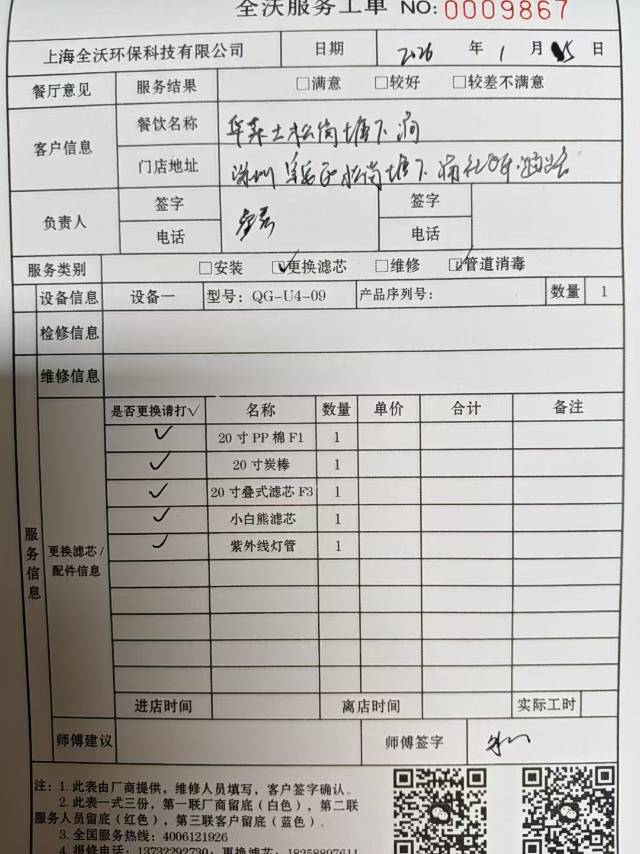 全沃服务工单 NO:0009867
上海全沃环保科技有限公司 日期 2026 年 1 月 15 日
餐厅意见 服务结果 □满意 □较好 □较差不满意
客户信息 餐饮名称 华莱士松岗塘下涌
门店地址 深圳 宝安区松岗塘下涌
负责人 签字 签字
电话 电话
服务类别 □安装 ☑更换滤芯 □维修 ☑管道消毒
设备信息 设备一 型号: QG-U4-09 产品序列号: 数量 1
检修信息
维修信息
服务信息 更换滤芯/配件信息
是否更换请打√ 名称 数量 单价 合计 备注
✓ 20寸PP棉F1 1
✓ 20寸炭棒 1
✓ 20寸叠式滤芯F3 1
✓ 小白熊滤芯 1
✓ 紫外线灯管 1
进店时间 离店时间 实际工时
师傅建议 师傅签字
注: 1.此表由厂商提供，维修人员填写，客户签字确认。
2.此表一式三份，第一联厂商留底(白色)，第二联
服务人员留底(红色)，第三联客户留底(蓝色)。
3.全国服务热线: 4006121926
4.报修电话: 13732292730; 更换滤芯: 18258897611